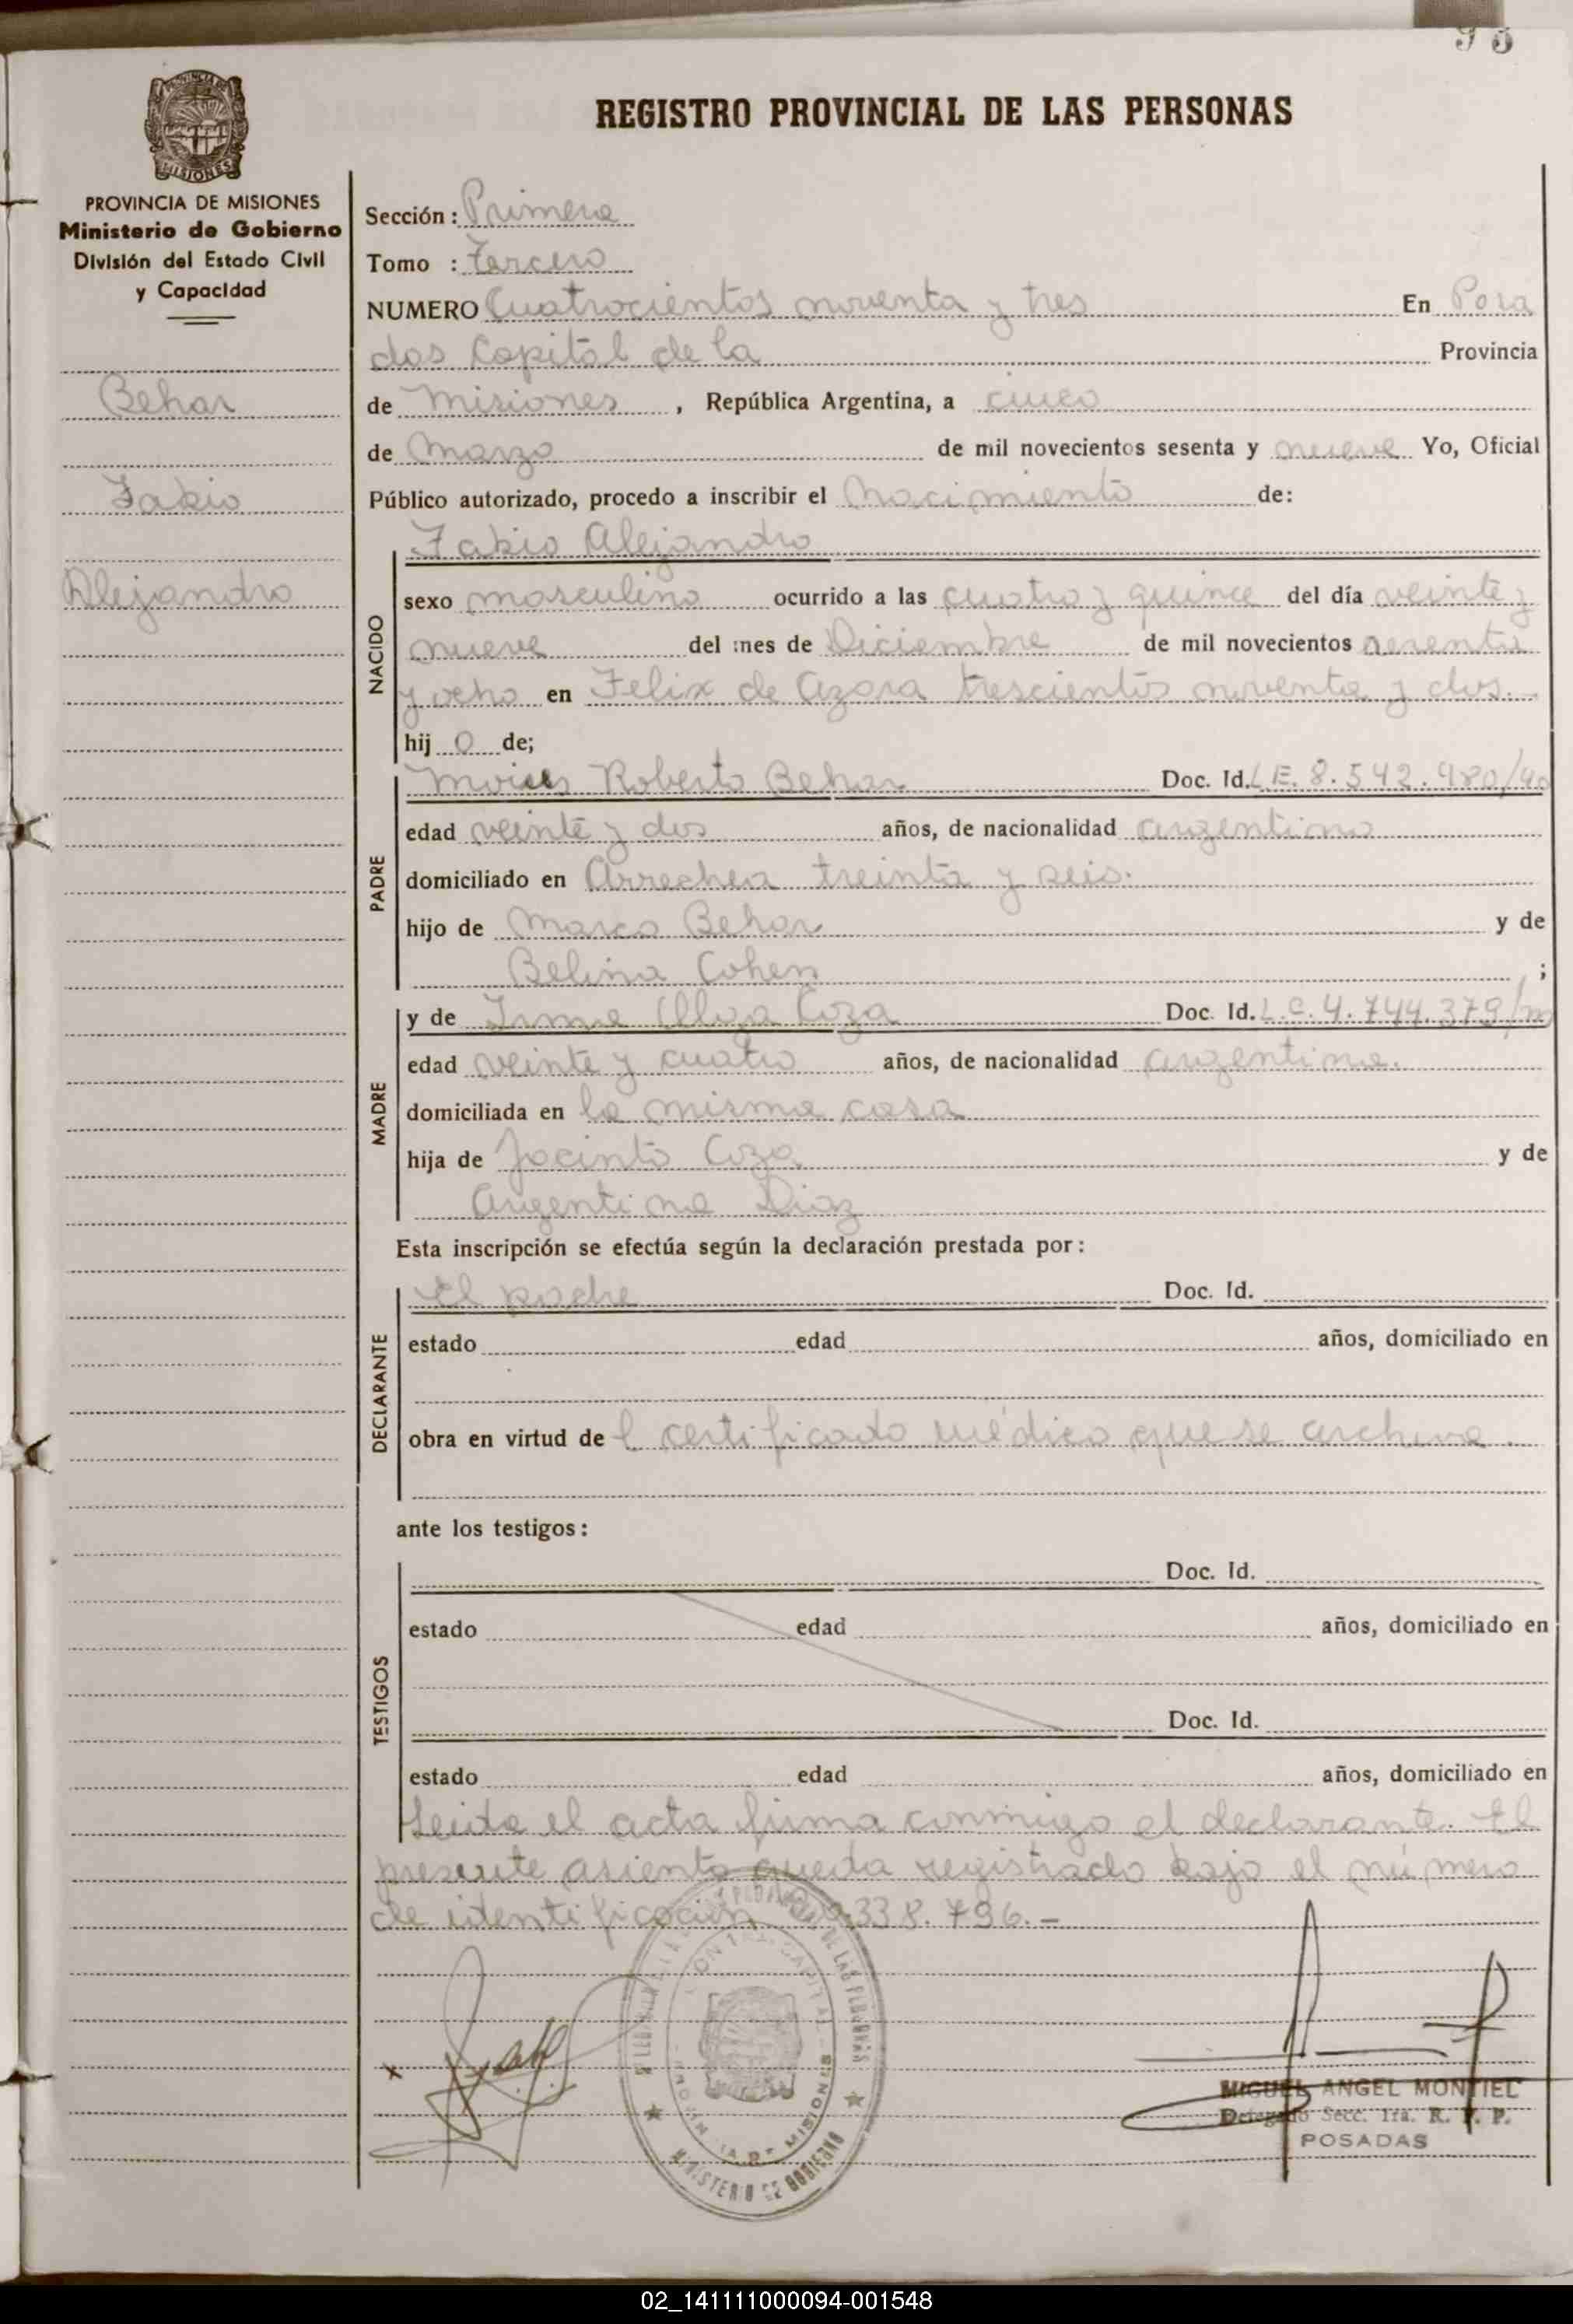 93
PROVINCIA DE MISIONES
Ministerio de Gobierno
División del Estado Civil
y Capacidad
Behar
Fabio
Alejandro
REGISTRO PROVINCIAL DE LAS PERSONAS
Sección: Primera
Tomo : Tercero
NUMERO Cuatrocientos noventa y tres En Posa
das Capital de la Provincia
de Misiones, República Argentina, a cinco
de Marzo de mil novecientos sesenta y nueve Yo, Oficial
Público autorizado, procedo a inscribir el Nacimiento de:
NACIDO
Fabio Alejandro
sexo masculino ocurrido a las cuatro y quince del día veinte y
nueve del mes de Diciembre de mil novecientos sesenta
y ocho en Felix de Azara trescientos noventa y dos.
hij o de;
PADRE
Moises Roberto Behar Doc. Id. L.E. 8.542.980/40
edad veinte y dos años, de nacionalidad argentino
domiciliado en Arrechea treinta y seis.
hijo de Marco Behar y de
Belina Cohen ;
MADRE
y de Irma Olga Coza Doc. Id. L.C. 4.744.379/m
edad veinte y cuatro años, de nacionalidad argentina.
domiciliada en la misma casa
hija de Jacinto Coza y de
Argentina Diaz
Esta inscripción se efectúa según la declaración prestada por:
DECLARANTE
El padre Doc. Id.
estado edad años, domiciliado en
obra en virtud de l certificado médico que se archiva.
ante los testigos:
TESTIGOS
Doc. Id.
estado edad años, domiciliado en
Doc. Id.
estado edad años, domiciliado en
Leida el acta firma conmigo el declarante. El
presente asiento queda registrado bajo el número
de identificación 20.338.796.-
MINISTERIO DE GOBIERNO
MISIONES
MIGUEL ANGEL MONTIEL
Delegado Secc. 1ra. R. P. P.
POSADAS
02_141111000094-001548